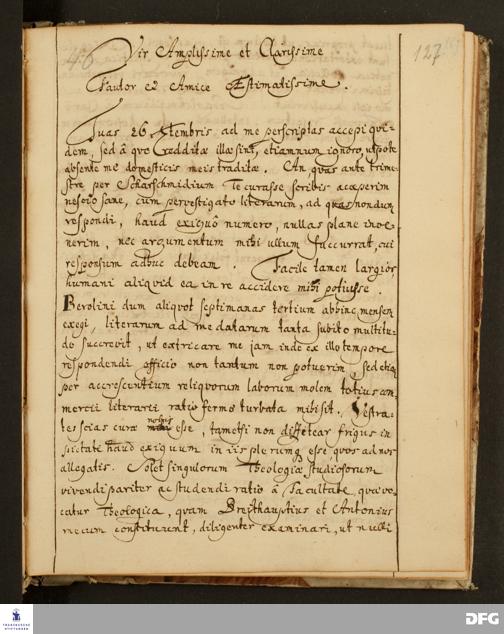 46
127
Vir Amplissime et Clarissime.
Fautor et Amice Æstimatissime.
Tuas 26 7tembris ad me perscriptas accepi qui-
dem, sed à qvo redditæ illæ sint, etiamnum ignoro, utpote
absente me domesticis meis traditæ. An qvas ante trime-
stre per Scharschmidium Te curasse scribis acceperim
nescio sane, cum pervestigato literarum, ad quas nondum
respondi, haud exiguô numero, nullas plane inve-
nerim, nec argumentum mihi ullum succurrat, cui
responsum adhuc debeam. Facile tamen largior,
humani aliqvid ea in re accidere mihi potuisse.
Berolini dum aliqvot septimanas tertium abhinc mensem
exegi, literarum ad me datarum tanta subito multitu-
do succrevit, ut extricare me jam inde ex illo tempore
respondendi officio non tantum non potuerim, sed etiam
per accrescentium reliqvorum laborum molem totius com-
mercii literarii ratio ferme turbata mihi sit. Vestra-
tes scias curæ nobis esse, tametsi non diffitear frigus in
pietati haud exiguum in iis plerumq esse, qvos ad nos
allegatis. Solet singulorum Theologiæ studiosorum
vivendi pariter ac studendi ratio à Facultate, qvæ vo-
catur Theologica, qvam Breithauptius et Antonius
mecum constituunt, diligenter examinari, ut nulli
FRANCKESCHE STIFTUNGEN
DFG